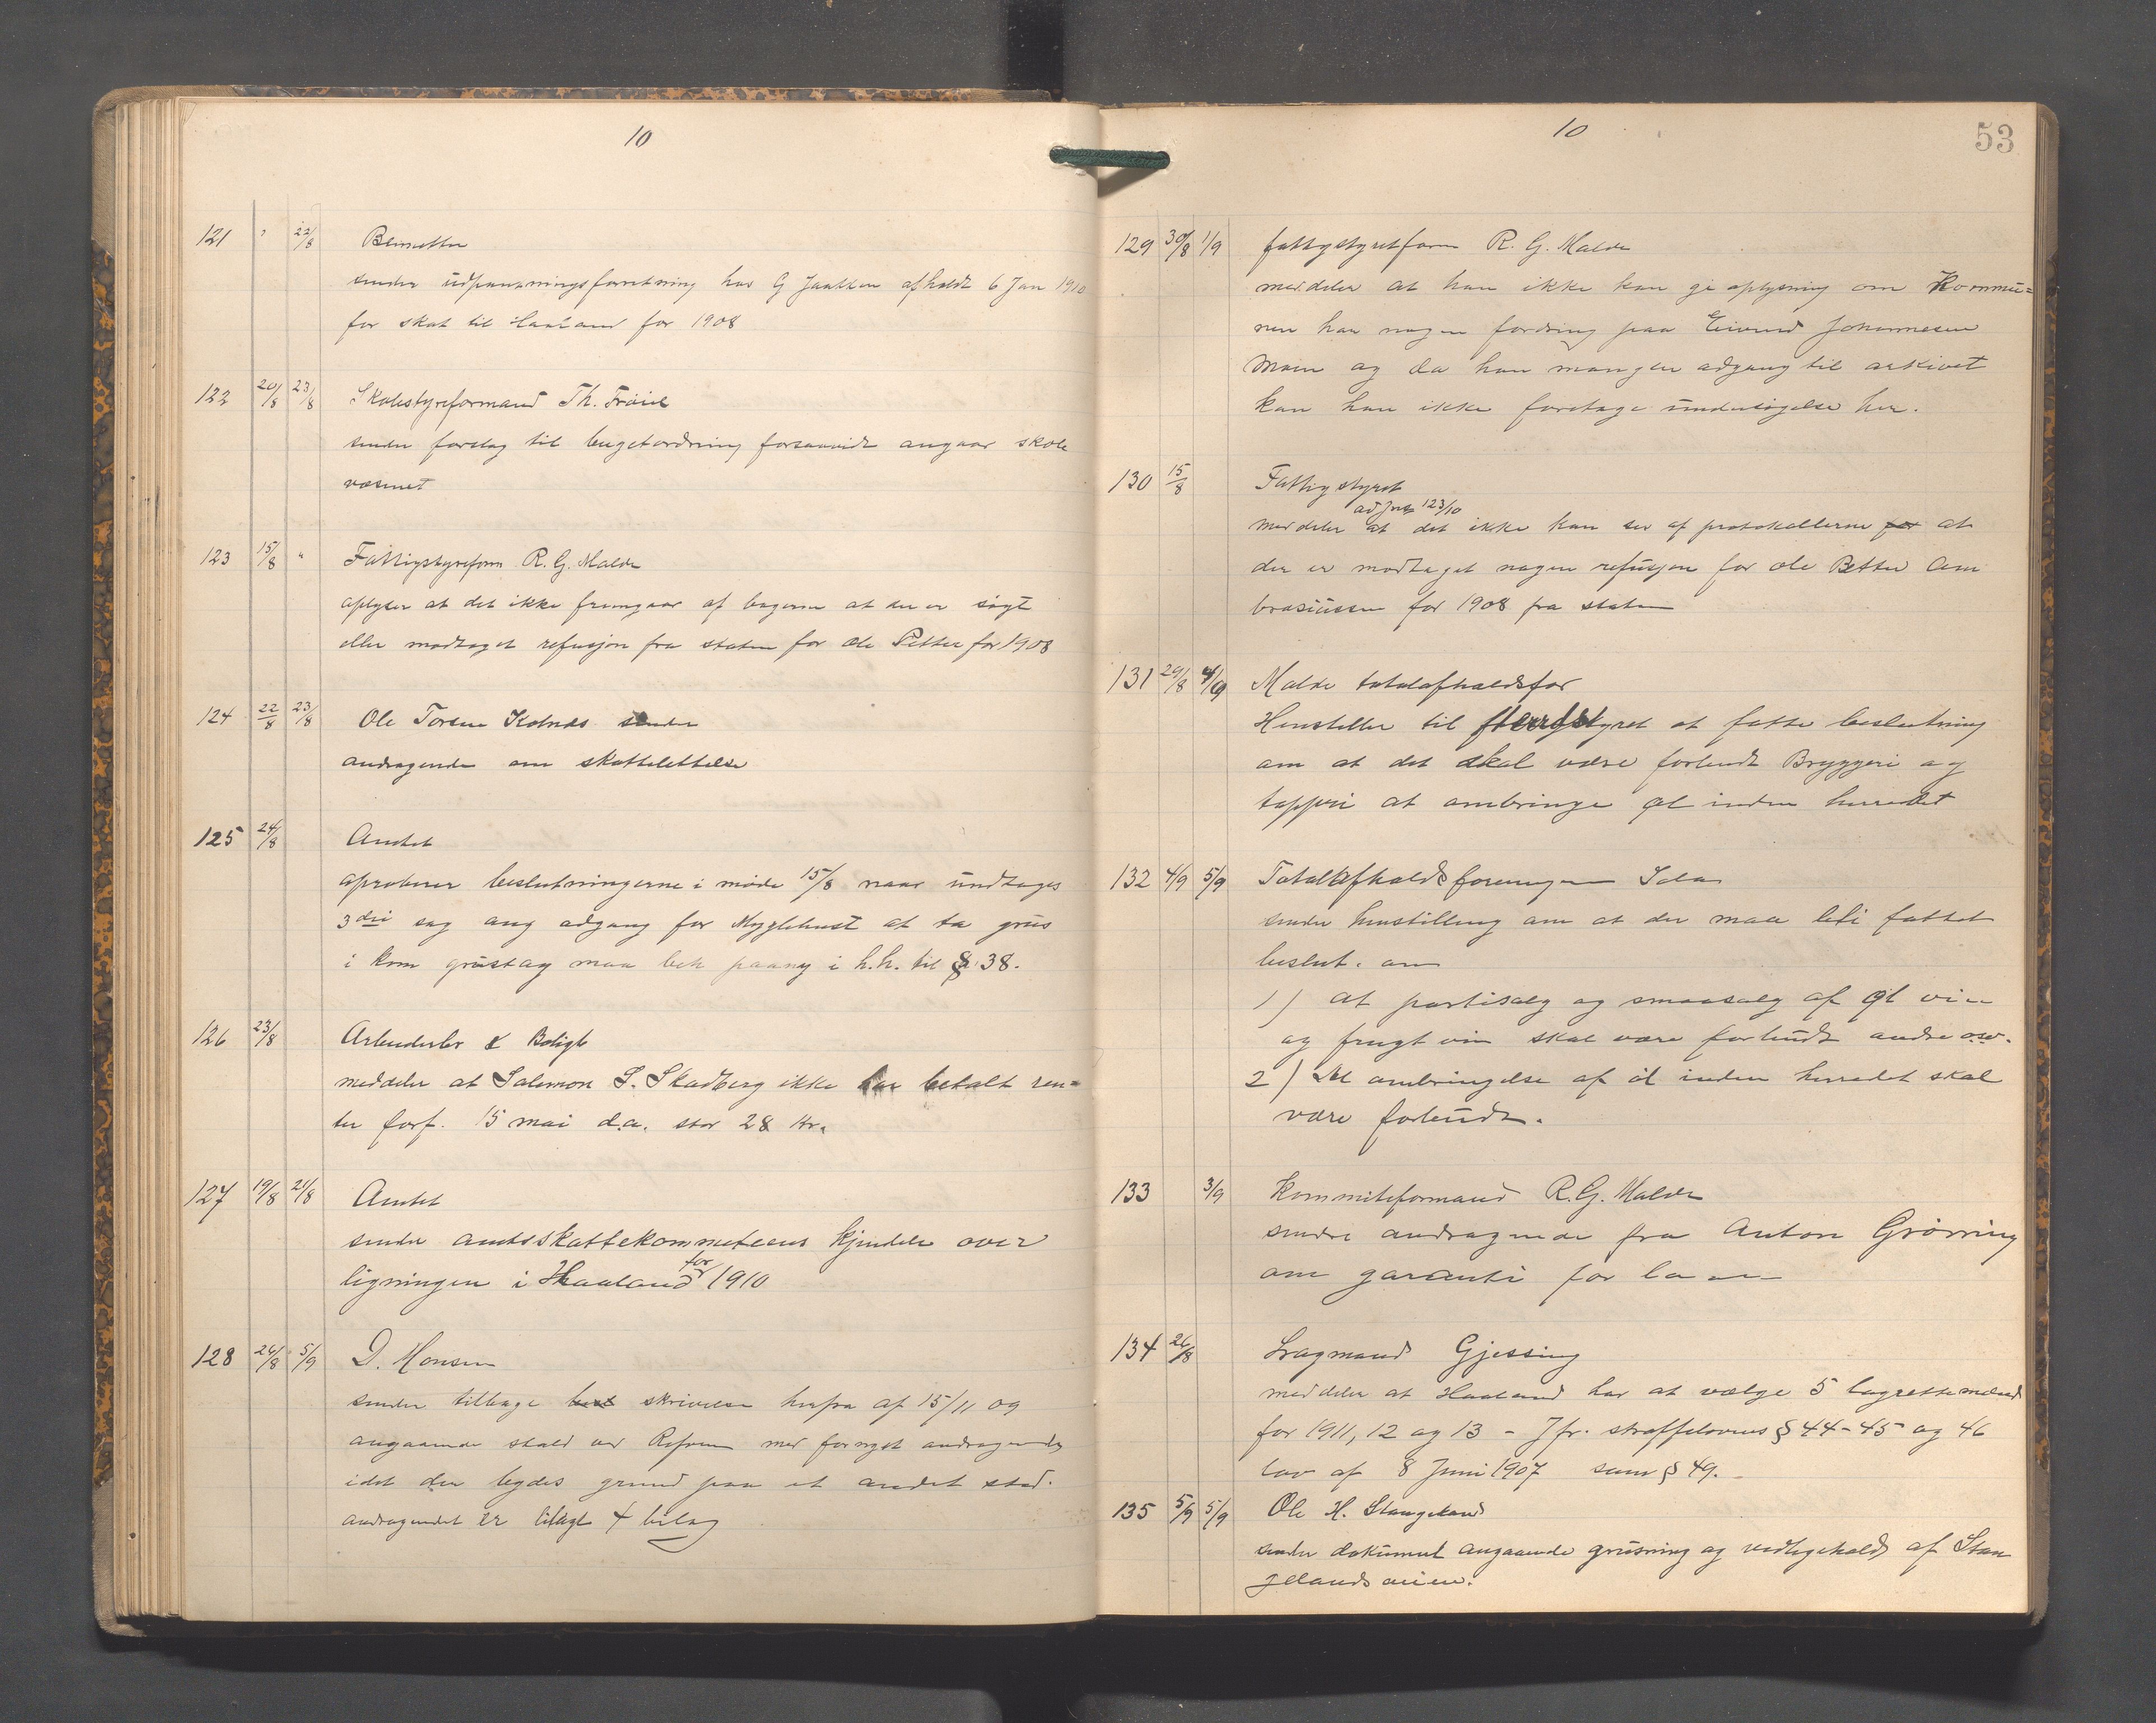 10
121 " 22/8 Bennetter
sender udpantningsforretning hos G Jaatten afholdt 6 Jan 1910
for skat til Haaland for 1908
122 20/8 23/8 Skolestyreformand Th. Frøile
sender forslag til bugetordning forsaavidt angaar skole
væsenet
123 15/8 " Fattigstyreform R. G. Malde
oplyser at det ikke fremgaar af bøgerne at der er søgt
eller modtaget refusjon fra staten for Ole Petter for 1908
124 22/8 23/8 Ole Torsen Kolnæs sender
andragende om skattelettelse
125 24/8 Amtet
aproberer beslutningerne i møde 15/8 naar undtages
3die sag ang adgang for Myglehust at ta grus
i kom grustag maa beh paany i h.h. til § 38.
126 23/8 Arbeiderbr & Boligb
meddeler at Salomon S. Skadberg ikke har betalt ren=
ter forf. 15 mai d.a. stor 28 Kr.
127 19/8 21/8 Amtet
sender amtsskattekommeteens kjendelse over
ligningen i Haaland for 1910
128 26/8 5/9 D. Hansen
sender tilbage best skrivelse herfra af 15/11 09
angaaende stald ved Reformen med fornyet andragende
idet der bydes grund paa et andet sted.
andragendet er bilagt 4 bilag
10
53
129 30/8 1/9 fattigstyretform R. G. Malde
meddeler at han ikke kan gi oplysning om Kommu=
nen har nogen fordring paa Eivind Johannesen
og da han mangler adgang til arkivet
kan han ikke foretage undersøgelse her.
130 15/8 Fattigstyret
ad Jnr 123/10
meddeler at det ikke kan ses af protokollerne for at
der er modtaget nogen refusjon for Ole Petter Am
brosiussen for 1908 fra staten
131 29/8 4/9 Malde totalafholdsfor
Henstiller til Herredstyret at fatte beslutning
om at det skal være forbudt Bryggeri og
tapperi at ombringe øl inden herredet
132 4/9 5/9 Totalafholdsforeningen Sola
sender henstilling om at der maa bli fattet
beslut. om
1) at partisalg og smaasalg af øl vin
og frugtvin skal være forbudt andre osv.
2) At ombringelse af øl inden herredet skal
være forbudt.
133 3/9 Kommiteformand R. G. Malde
sender andragende fra Anton Grønning
om garanti for laan
134 26/8 Lagmand Gjessing
meddeler at Haaland har at vælge 5 lagrettemænd
for 1911, 12 og 13 - Jfr. straffelovens § 44-45 og 46
lov af 8 Juni 1907 sam § 49.
135 5/9 5/9 Ole H. Stangeland
sender dokument angaaende grusning og vedligehold af Stan
gelandsveien.